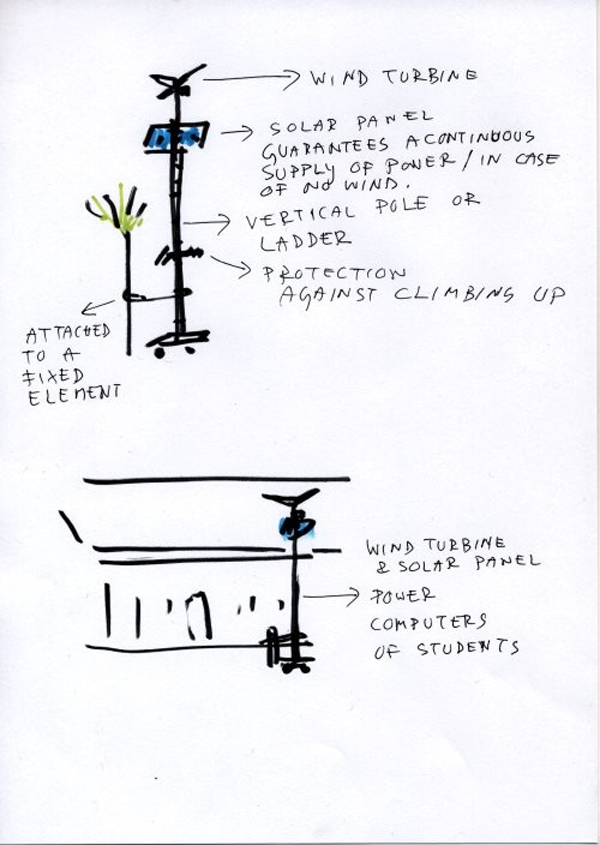 WIND TURBINE
SOLAR PANEL
GUARANTEES A CONTINUOUS
SUPPLY OF POWER / IN CASE
OF NO WIND.
VERTICAL POLE OR
LADDER
PROTECTION
AGAINST CLIMBING UP
ATTACHED
TO A
FIXED
ELEMENT
WIND TURBINE
& SOLAR PANEL
POWER
COMPUTERS
OF STUDENTS